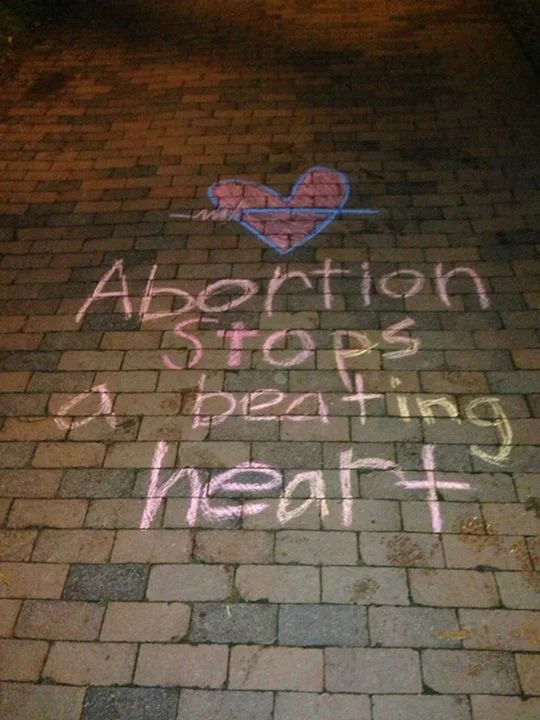 Abortion
Stops
a beating
heart